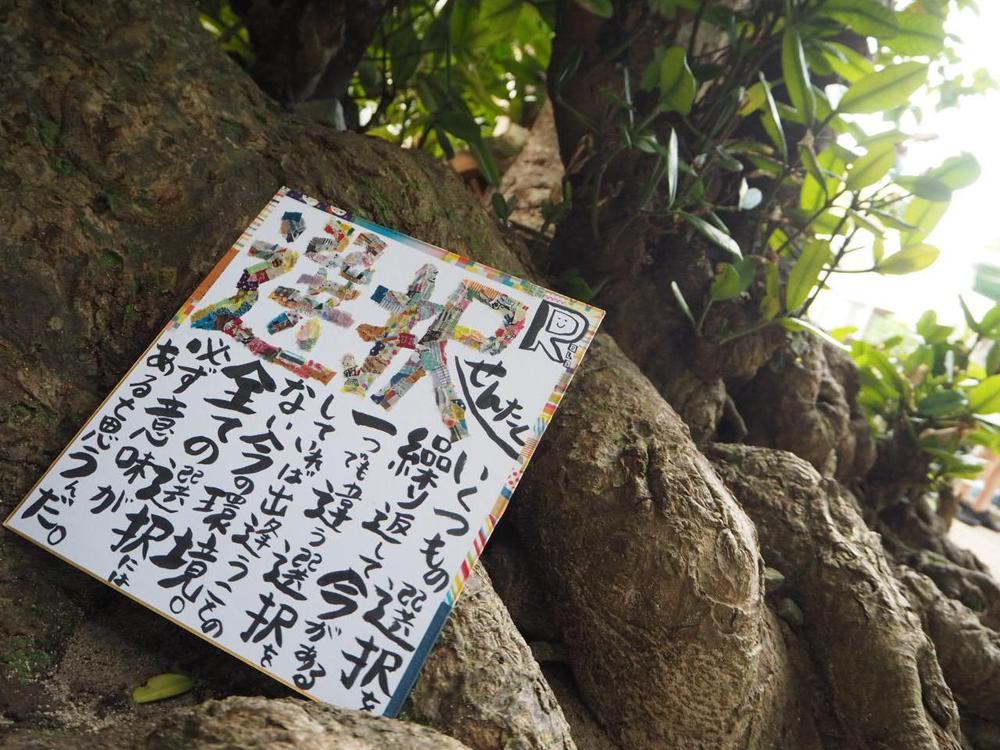 選択
R
せんたく
いくつもの選択を
繰り返して今がある
一つでも違う選択を
していれば出逢うことの
ない今の環境。
全ての選択には
必ず意味が
あると思うんだ。